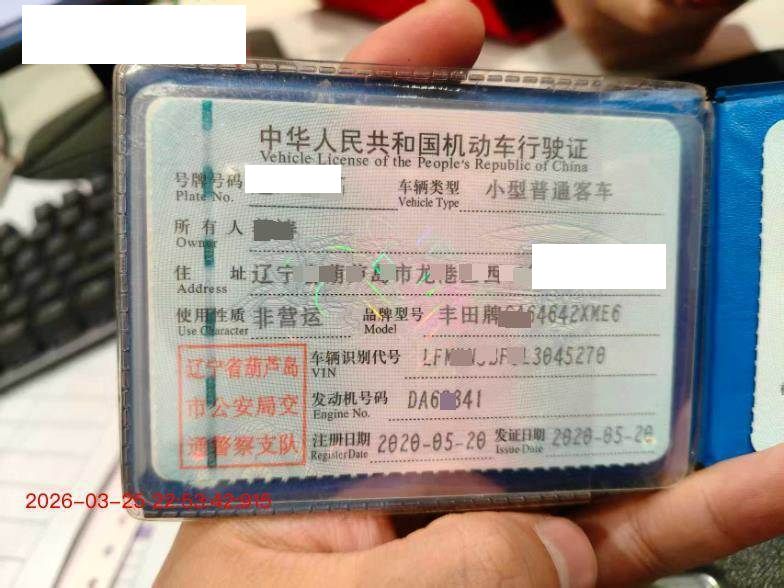 中华人民共和国机动车行驶证
Vehicle License of the People's Republic of China
号牌号码 车辆类型 小型普通客车
Plate No. Vehicle Type
所有人
Owner
住址 辽宁 市龙港区
Address
使用性质 非营运 品牌型号 丰田牌 64642XME6
Use Character Model
辽宁省葫芦岛
市公安局交
通警察支队
车辆识别代号 LFM L3045270
VIN
发动机号码 DA6 841
Engine No.
注册日期 2020-05-20 发证日期 2020-05-20
Register Date Issue Date
2026-03-25 22:53:42:915